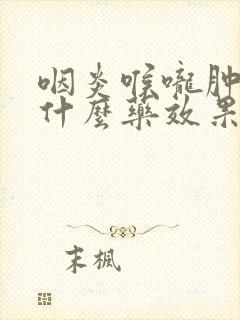 咽炎喉嚨肿
什麼藥效果
末楓